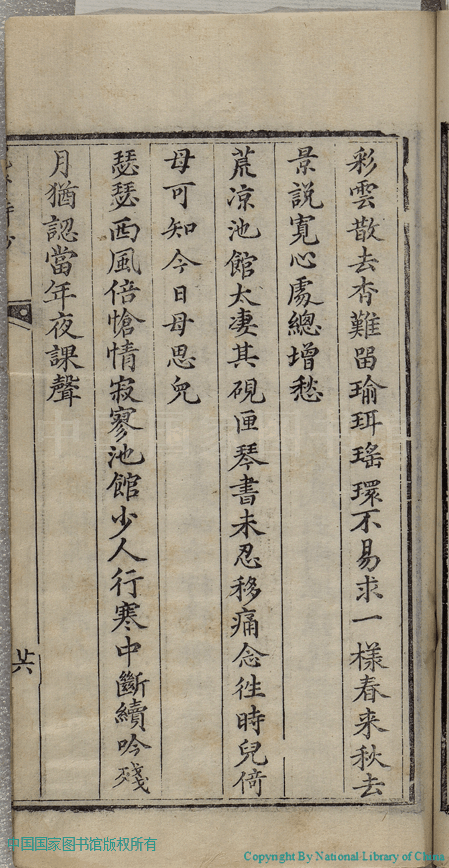 彩雲散去杳難畱瑜珥瑤環不易求一樣春来秋去
景説寛心處總增愁
荒凉池館太淒其硯匣琴書未忍移痛念徃時兒倚
母可知今日母思兒
瑟瑟西風倍愴情寂寥池館少人行寒中斷續吟殘
月猶認當年夜課聲
廿六
中国国家图书馆版权所有
Copyright By National Library of China